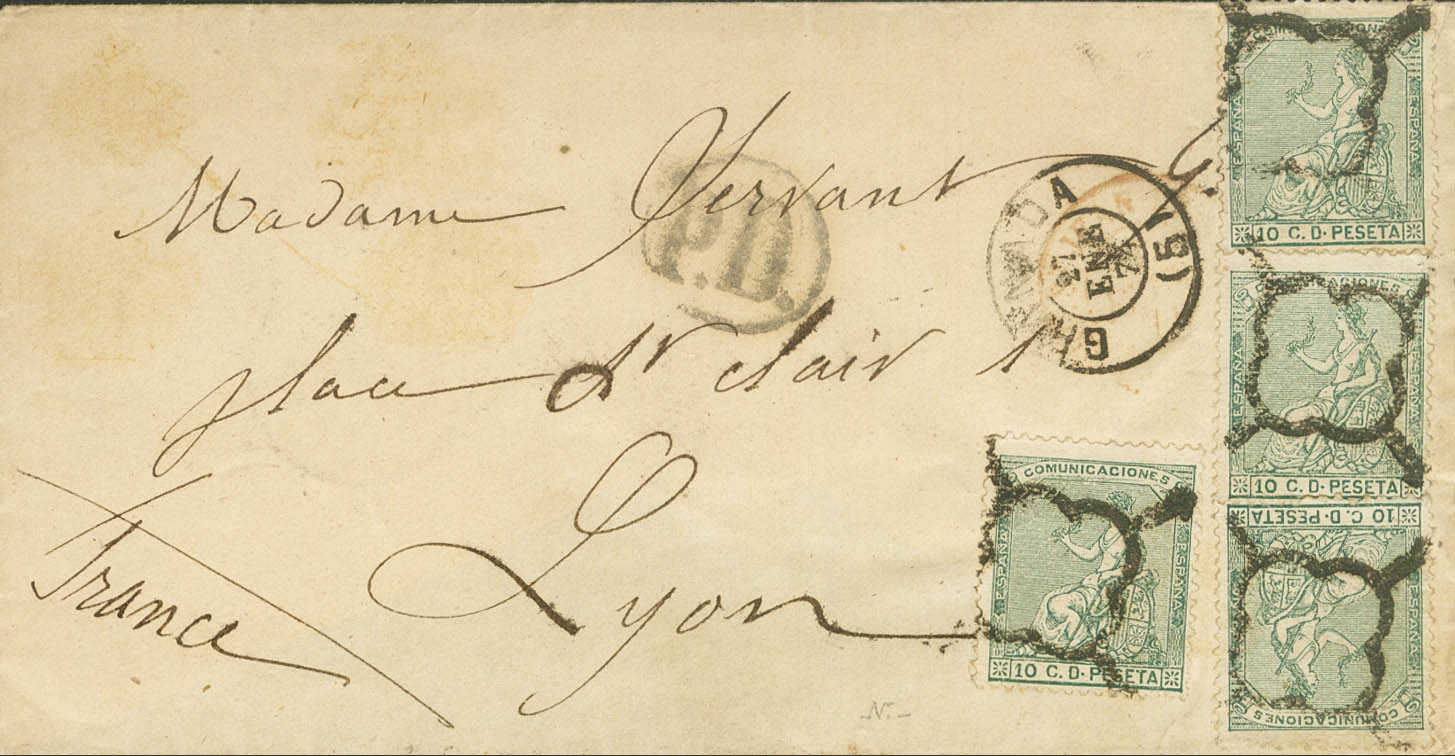 Madame Servant G.
place St clair 1
Lyon
France
P.D.
GRANADA (15)
27
ENE
74
COMUNICACIONES
ESPAÑA
ESPAÑA
10 C. D. PESETA
COMUNICACIONES
ESPAÑA
ESPAÑA
10 C. D. PESETA
10 C. D. PESETA
ESPAÑA
COMUNICACIONES
COMUNICACIONES
ESPAÑA
ESPAÑA
10 C. D. PESETA